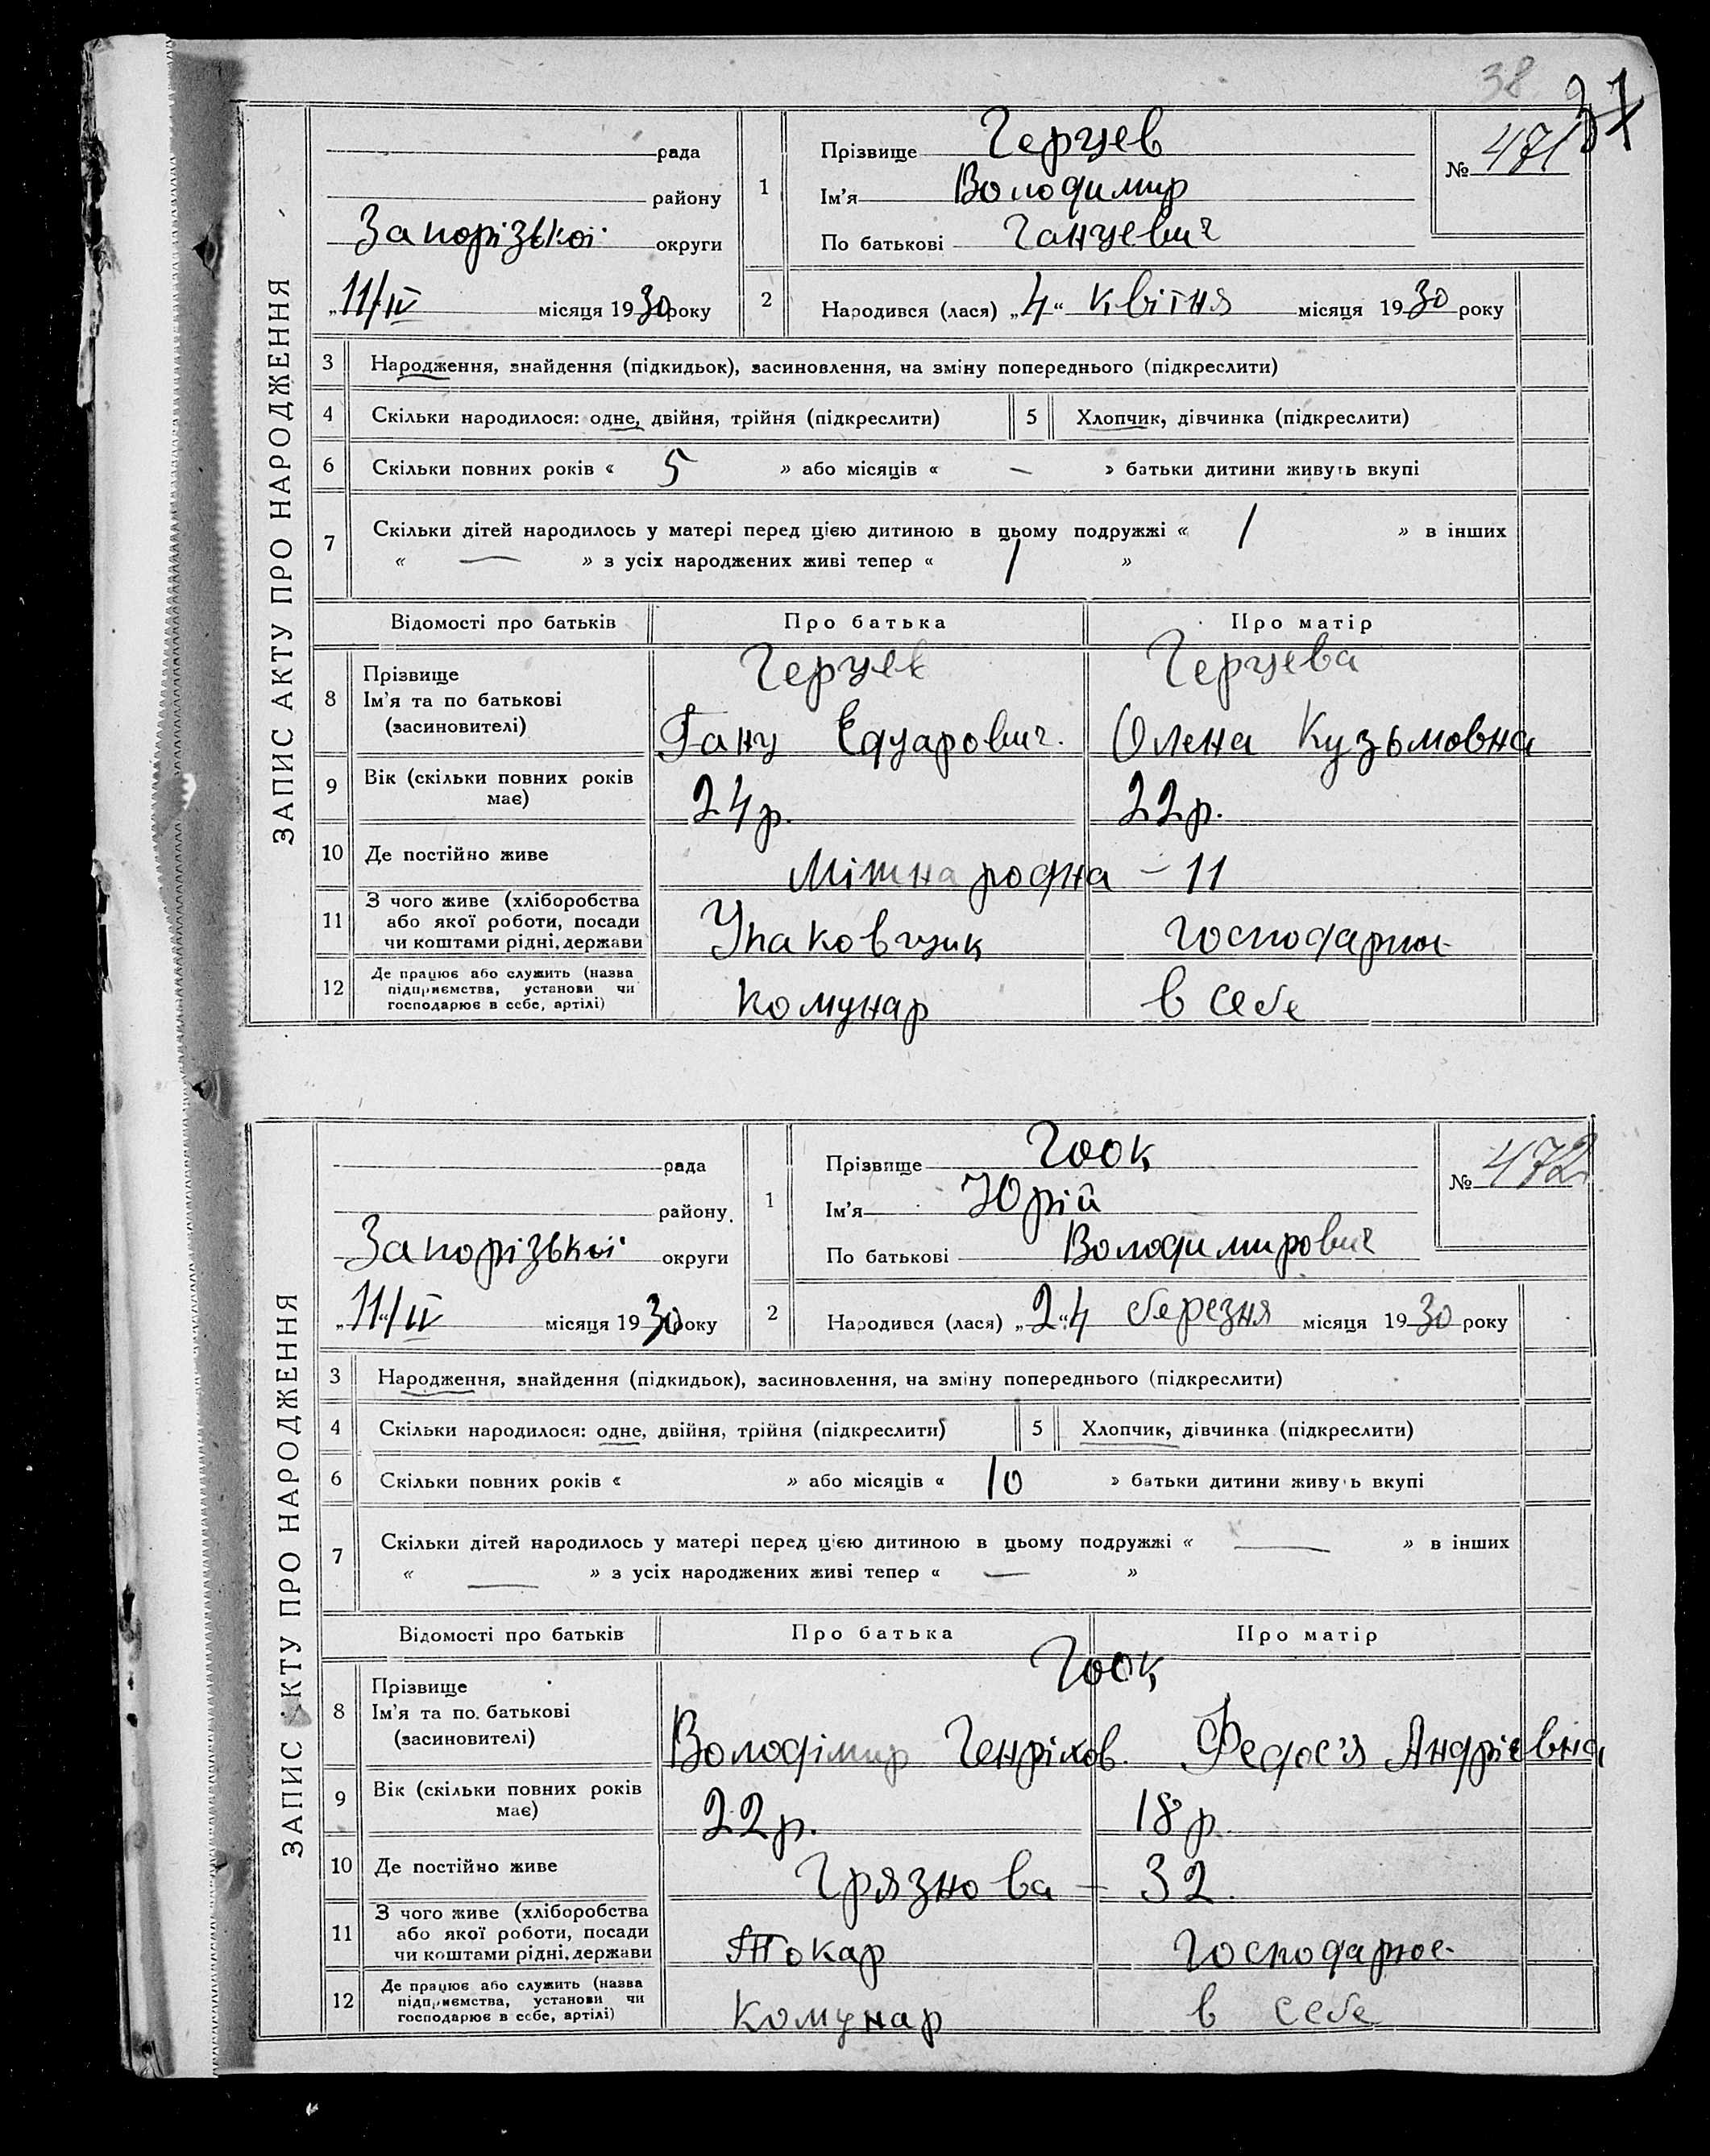 38
37
ЗАПИС АКТУ ПРО НАРОДЖЕННЯ
рада
району
Запорізької округи
„11/IV місяця 1930 року
1
Прізвище Герцев
Ім'я Володимир
По батькові Ганцевич
№ 471
2
Народився (лася) „4“ квітня місяця 1930 року
3 Народження, знайдення (підкидьок), засиновлення, на зміну попереднього (підкреслити)
4 Скільки народилося: одне, двійня, трійня (підкреслити)
5 Хлопчик, дівчинка (підкреслити)
6 Скільки повних років « 5 » або місяців « — » батьки дитини живуть вкупі
7 Скільки дітей народилось у матері перед цією дитиною в цьому подружжі « 1 » в інших
« — » з усіх народжених живі тепер « 1 »
Відомості про батьків Про батька Про матір
8 Прізвище Герцев Герцева
Ім'я та по батькові
(засновителі) Ганц Едуарович. Олена Кузьмовна
9 Вік (скільки повних років
має) 24 р. 22 р.
10 Де постійно живеМіжнародна – 11
11 З чого живе (хліборобства
або якої роботи, посади
чи коштами рідні, держави Упаковчик господарює
12 Де працює або служить (назва
підприємства, установи чи
господарює в себе, артілі) Комунар в себе
ЗАПИС АКТУ ПРО НАРОДЖЕННЯ
рада
району
Запорізької округи
„11/IV місяця 1930 року
1
Прізвище Гоок
Ім'я Юрій
По батькові Володимирович
№ 472
2
Народився (лася) „24 березня місяця 1930 року
3 Народження, знайдення (підкидьок), засиновлення, на зміну попереднього (підкреслити)
4 Скільки народилося: одне, двійня, трійня (підкреслити)
5 Хлопчик, дівчинка (підкреслити)
6 Скільки повних років « » або місяців « 10 » батьки дитини живуть вкупі
7 Скільки дітей народилось у матері перед цією дитиною в цьому подружжі « — » в інших
« — » з усіх народжених живі тепер « — »
Відомості про батьків Про батька Про матір
8 Прізвище Гоок
Ім'я та по батькові
(засиновителі) Володімир Генріхов. Федос'я Андрієвна
9 Вік (скільки повних років
має) 22 р. 18 р.
10 Де постійно живе Грязнова – 32.
11 З чого живе (хліборобства
або якої роботи, посади
чи коштами рідні, держави Токар господарює
12 Де працює або служить (назва
підприємства, установи чи
господарює в себе, артілі) Комунар в себе